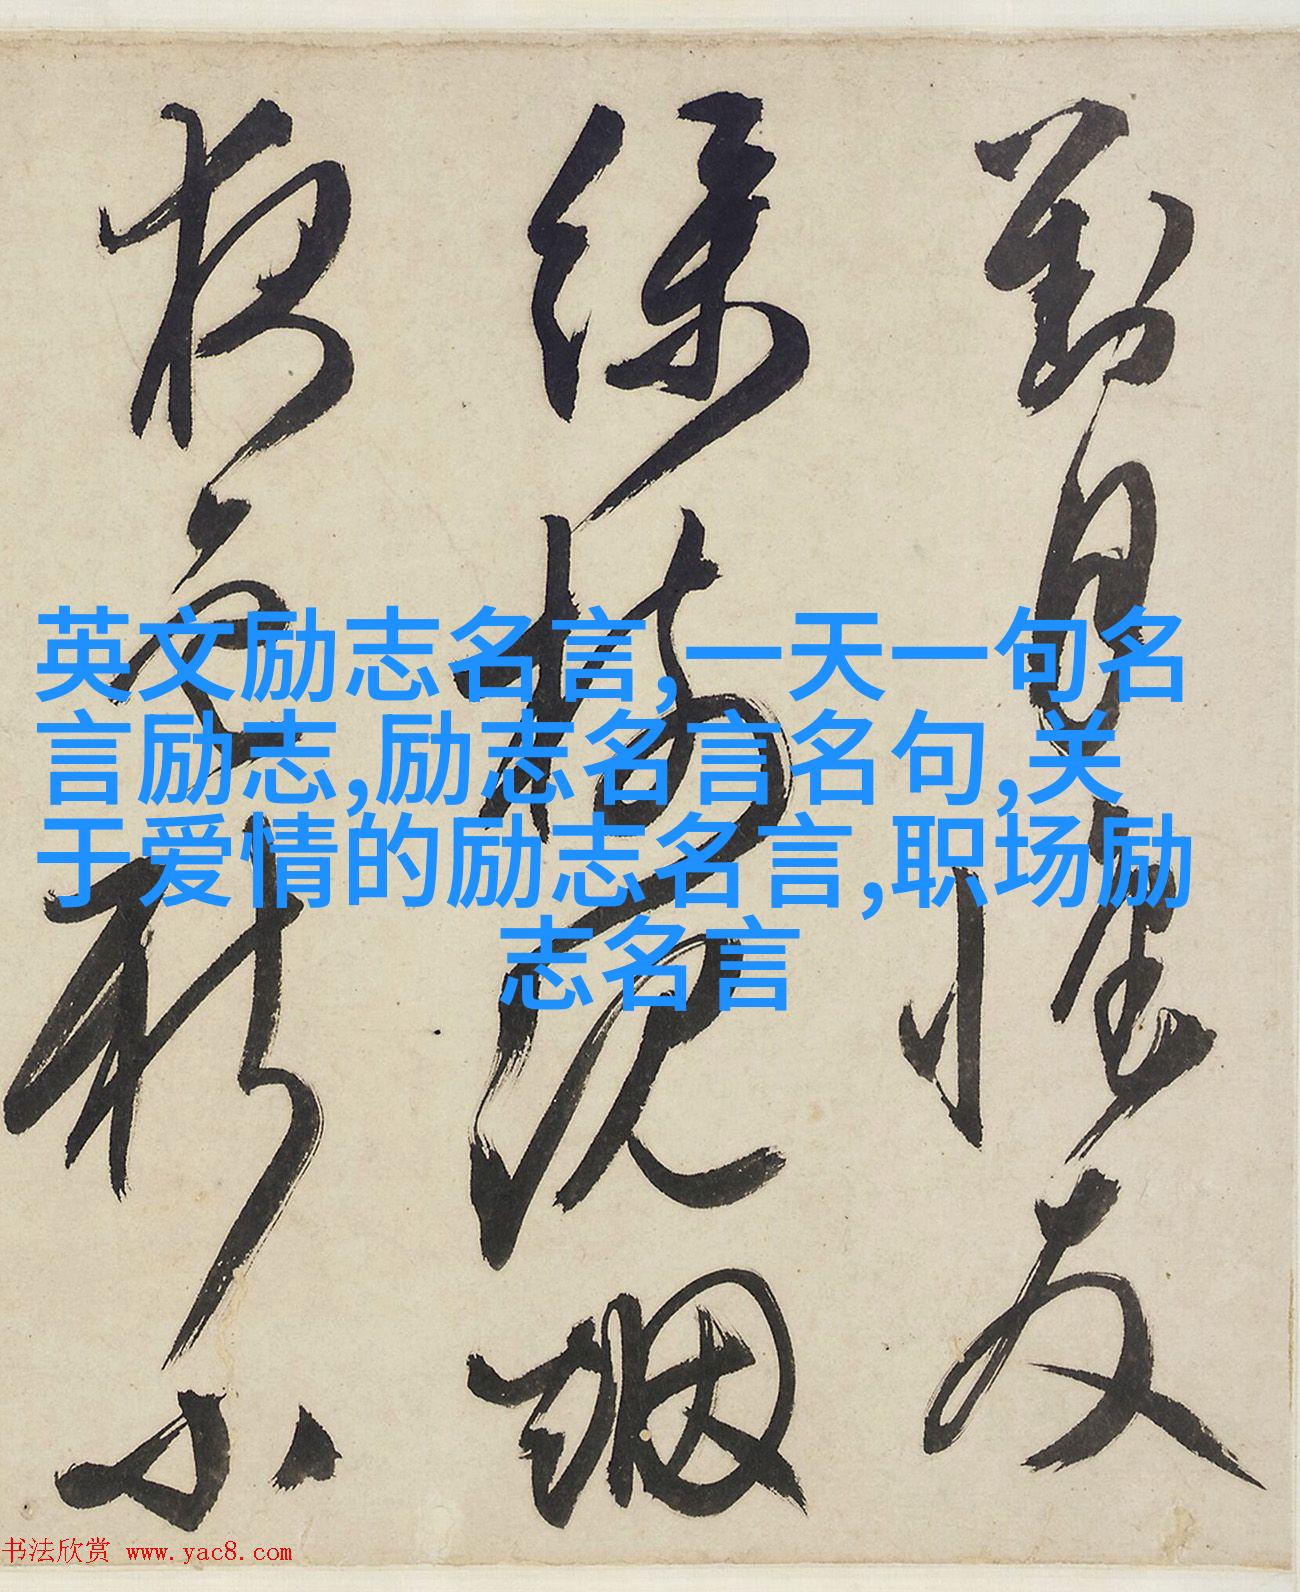 英文励志名言,一天一句名
言励志,励志名言名句,关
于爱情的励志名言,职场励
志名言
對月友
綠楊烟
小
书法欣赏 www.yac8.com